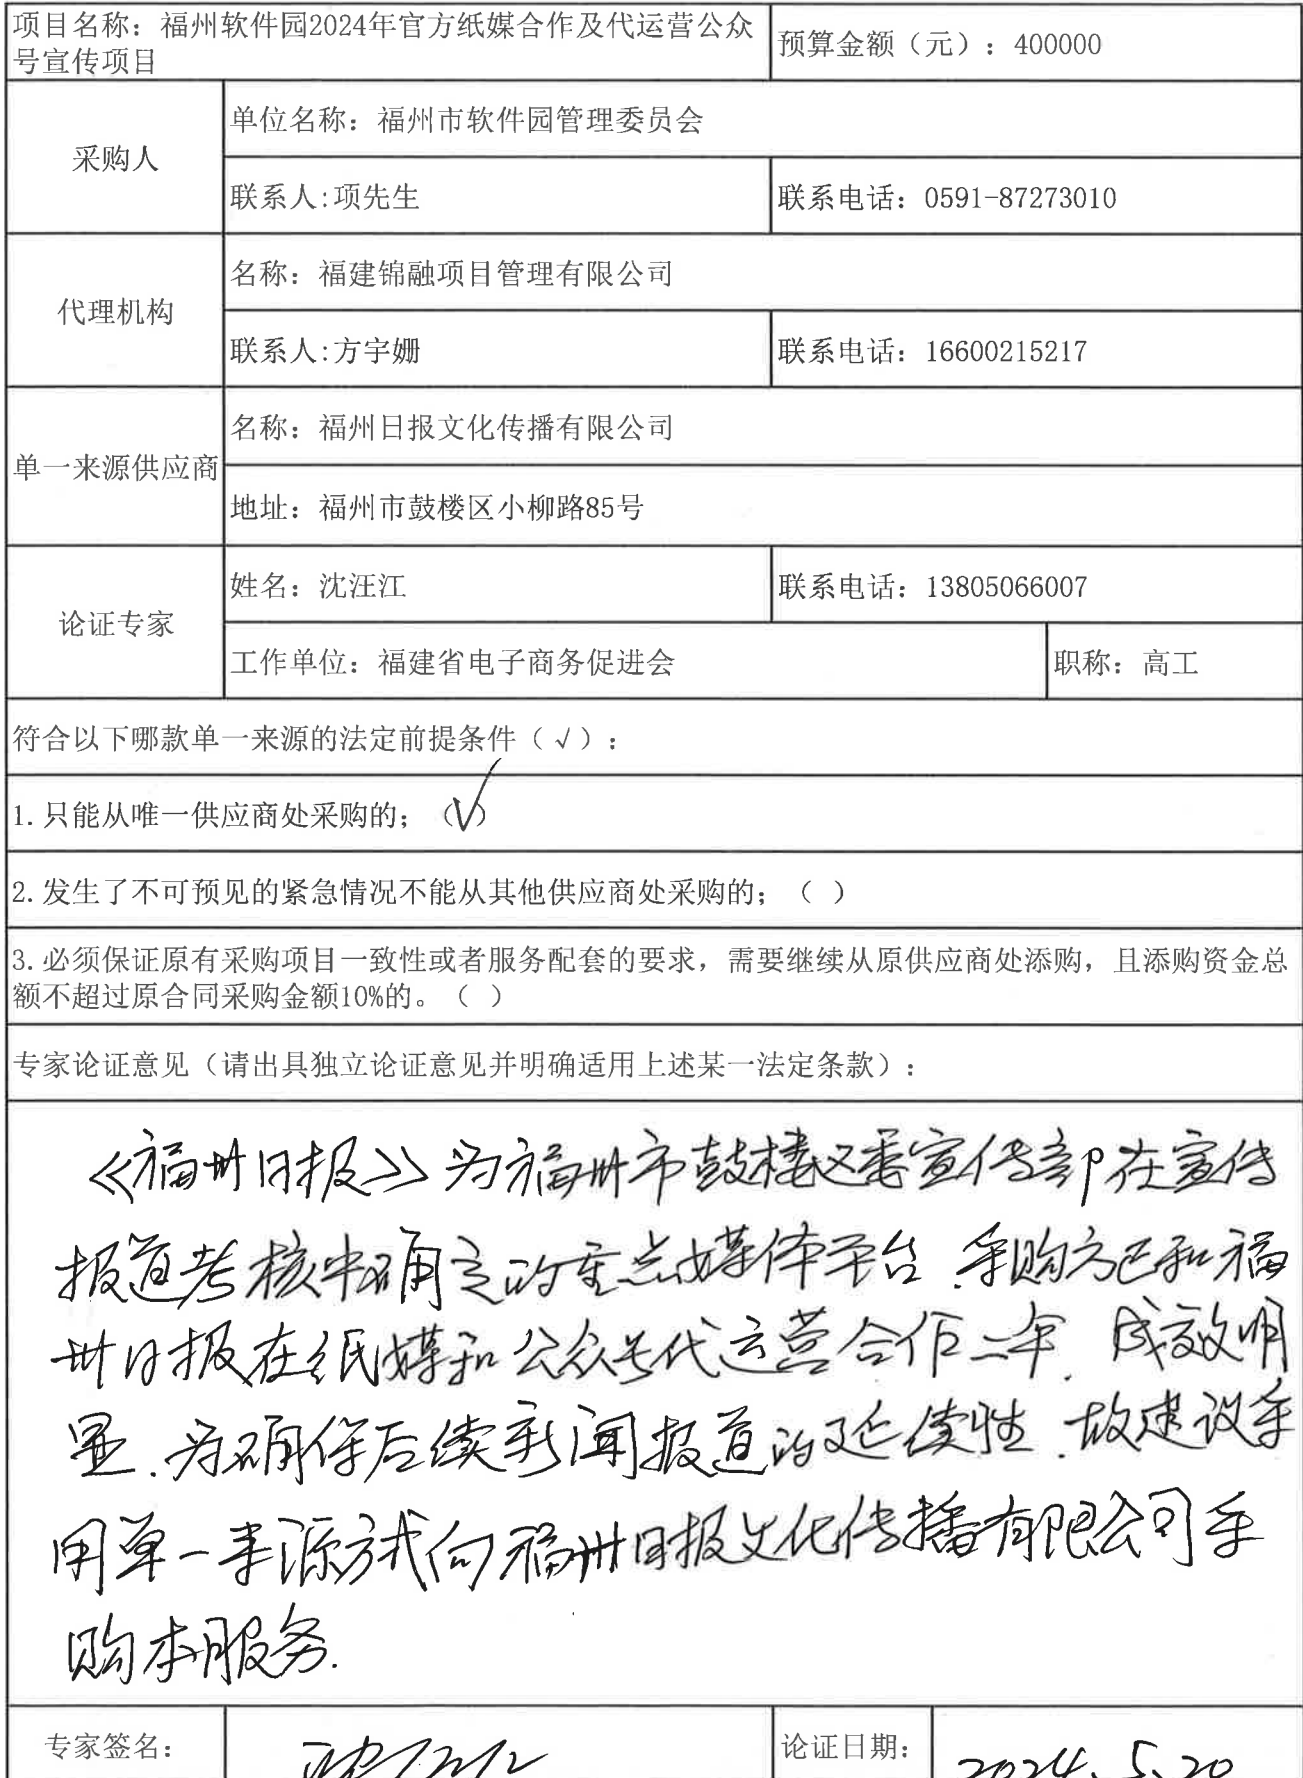 项目名称：福州软件园2024年官方纸媒合作及代运营公众
号宣传项目
预算金额（元）：400000
采购人
单位名称：福州市软件园管理委员会
联系人:项先生
联系电话：0591-87273010
代理机构
名称：福建锦融项目管理有限公司
联系人:方宇姗
联系电话：16600215217
单一来源供应商
名称：福州日报文化传播有限公司
地址：福州市鼓楼区小柳路85号
论证专家
姓名：沈汪江
联系电话：13805066007
工作单位：福建省电子商务促进会
职称：高工
符合以下哪款单一来源的法定前提条件（√）：
1.只能从唯一供应商处采购的；（√）
2.发生了不可预见的紧急情况不能从其他供应商处采购的；（ ）
3.必须保证原有采购项目一致性或者服务配套的要求，需要继续从原供应商处添购，且添购资金总
额不超过原合同采购金额10%的。（ ）
专家论证意见（请出具独立论证意见并明确适用上述某一法定条款）：
《福州日报》为福州市鼓楼区委宣传部在宣传
报道考核中确定的重点媒体平台.采购方已和福
州日报在纸媒和公众号代运营合作二年.成效明
显.为确保后续新闻报道的延续性.故建议采
用单一来源方式向福州日报文化传播有限公司采
购本服务.
专家签名：
论证日期：
2024.5.20